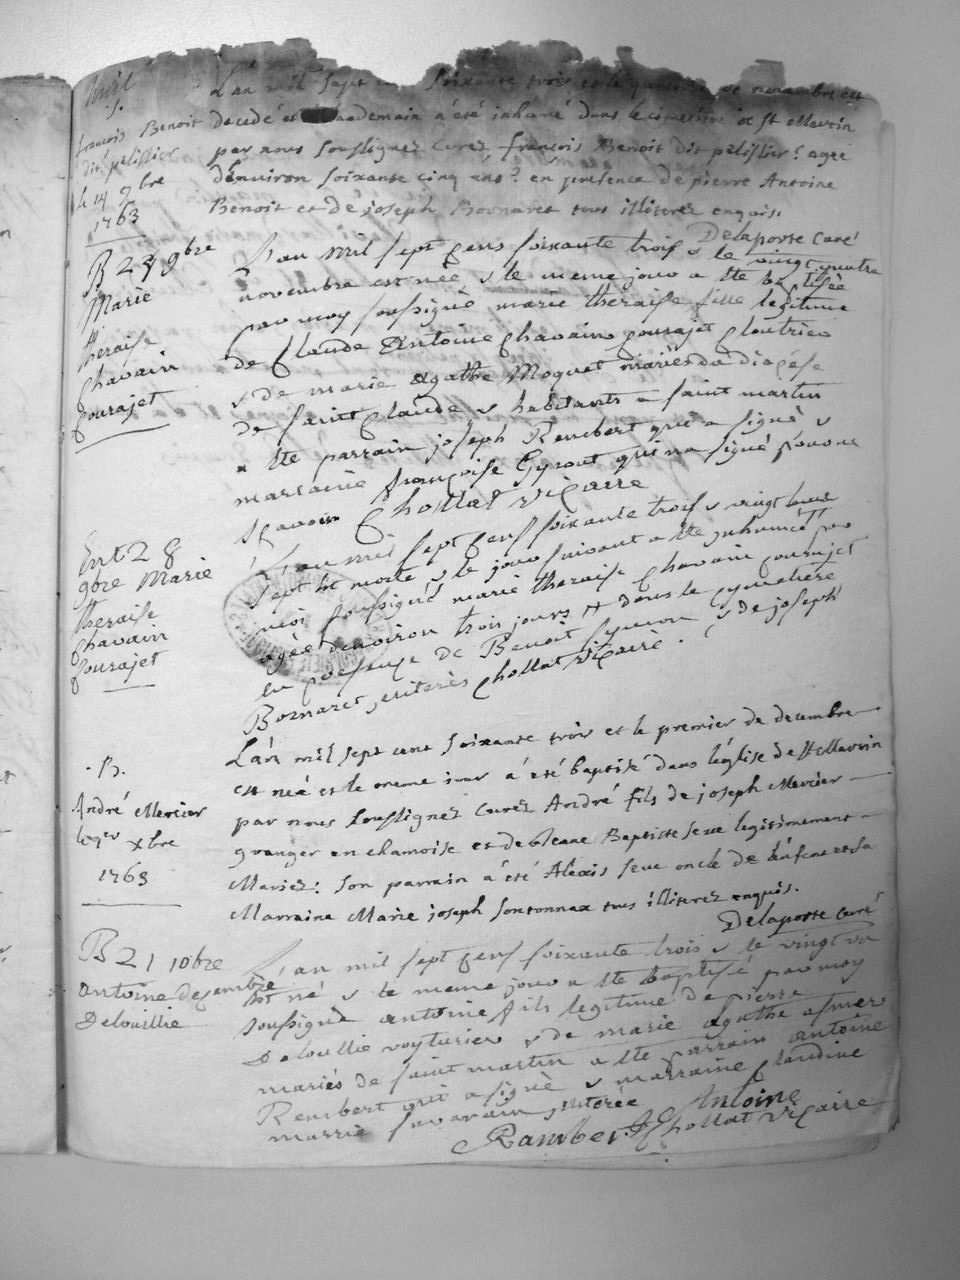 françois Benoit
dit pelissier
le 14 9bre
1763
L'an mil sept soixante trois et le novembre est
decedé et landemain a été inhumé dans le cimetiere de St Martin
par nous soussignez Curez françois Benoit dit pelissier agee
d'environ soixante cinq ans en presence de pierre Antoine
Benoit et de joseph Bornaret tous illiterez enquis.
Delaporte Curé
B 24 9bre
Marie
theraise
Chavain
pourajet
L'an mil sept cens soixante trois & le vingt quatre
novembre est née & le meme jour a ete batisée
par moy soussigné marie theraise fille legitime
de Claude Antoine Chavain pourajet cloutrier
& de marie agathe Moquet mariés du diocése
de saint Claude & habitants a saint martin
a ete parrain joseph Rembert qui a signé &
marraine françoise Gyrout qui na signé pour ne
sçavoir Chollat vicaire
Ent 28
9bre Marie
theraise
Chavain
pourajet
L'an mil sept cens soixante trois & vingt
sept est morte & le jour suivant a ete inhumée par
moi soussigné marie theraise Chavain pourajet
agée denviron trois jours dans le cymetiére
en presence de Benoit Symon & de joseph
Bornaret, illiterés Chollat vicaire.
B.
André Mercier
le 1er xbre
1763
L'an mil sept cent soixante trois et le premier de decembre
est née et le meme jour à été baptisé dans l'église de St Martin
par nous soussignez Curez André fils de joseph Mercier
granger en chamoise et de Baptiste seue legitimement
Mariez: son parrain à été Aléxis seue oncle de l'enfent et sa
Marraine Marie joseph Sontonnax tous illiterez enquis.
Delaporte Curé
B 21 10bre
antoine dezembre
Delouillie
L'an mil sept cens soixante trois & le vingt un
est né & le meme jour a ete baptisé par moy
soussigné antoine fils legitime de pierre
Delouillie voyturier & de marie agathe
mariés de saint martin a ete parrain antoine
Rembert qui a signé & marraine Claudine
marrie Savarain illiterée
Antoine
Rambert Chollat vicaire